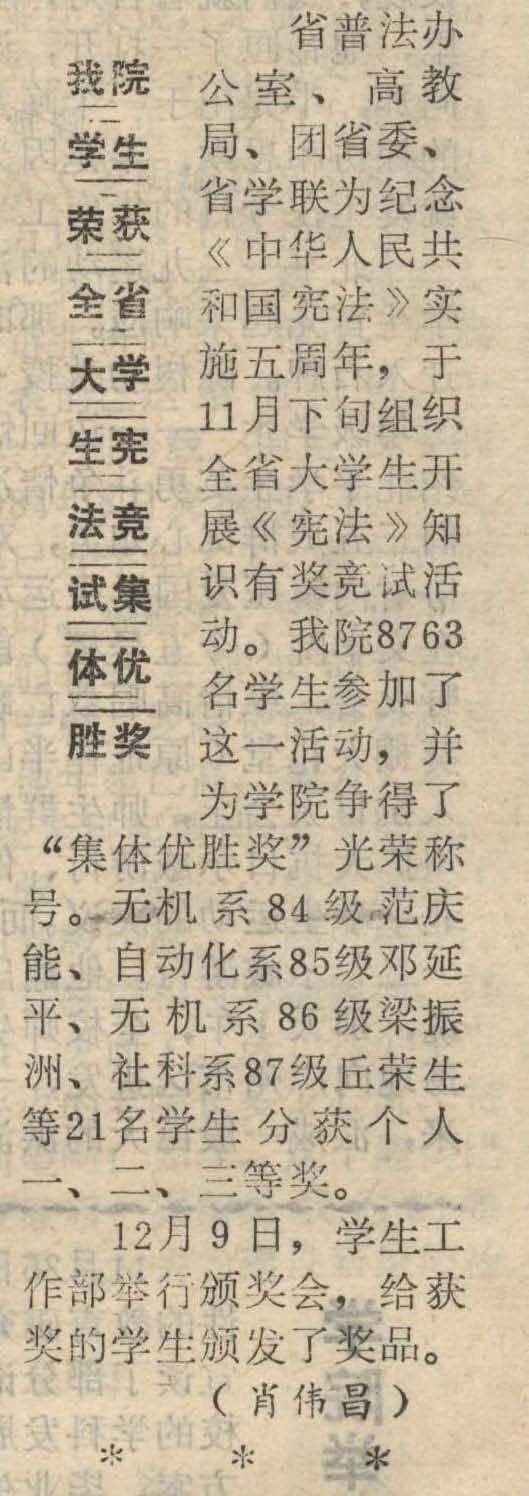 我院
学生
荣获
全省
大学
生宪
法竞
试集
体优
胜奖
省普法办
公室、高教
局、团省委、
省学联为纪念
《中华人民共
和国宪法》实
施五周年，于
11月下旬组织
全省大学生开
展《宪法》知
识有奖竞试活
动。我院8763
名学生参加了
这一活动，并
为学院争得了
“集体优胜奖”光荣称
号。无机系84级范庆
能、自动化系85级邓延
平、无机系86级梁振
洲、社科系87级丘荣生
等21名学生分获个人
一、二、三等奖。
12月9日，学生工
作部举行颁奖会，给获
奖的学生颁发了奖品。
（肖伟昌）
* * *